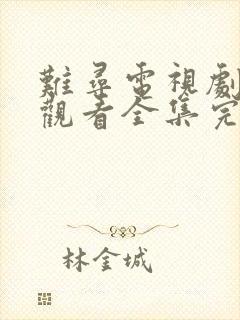 難尋電視劇
觀看全集完
林金城